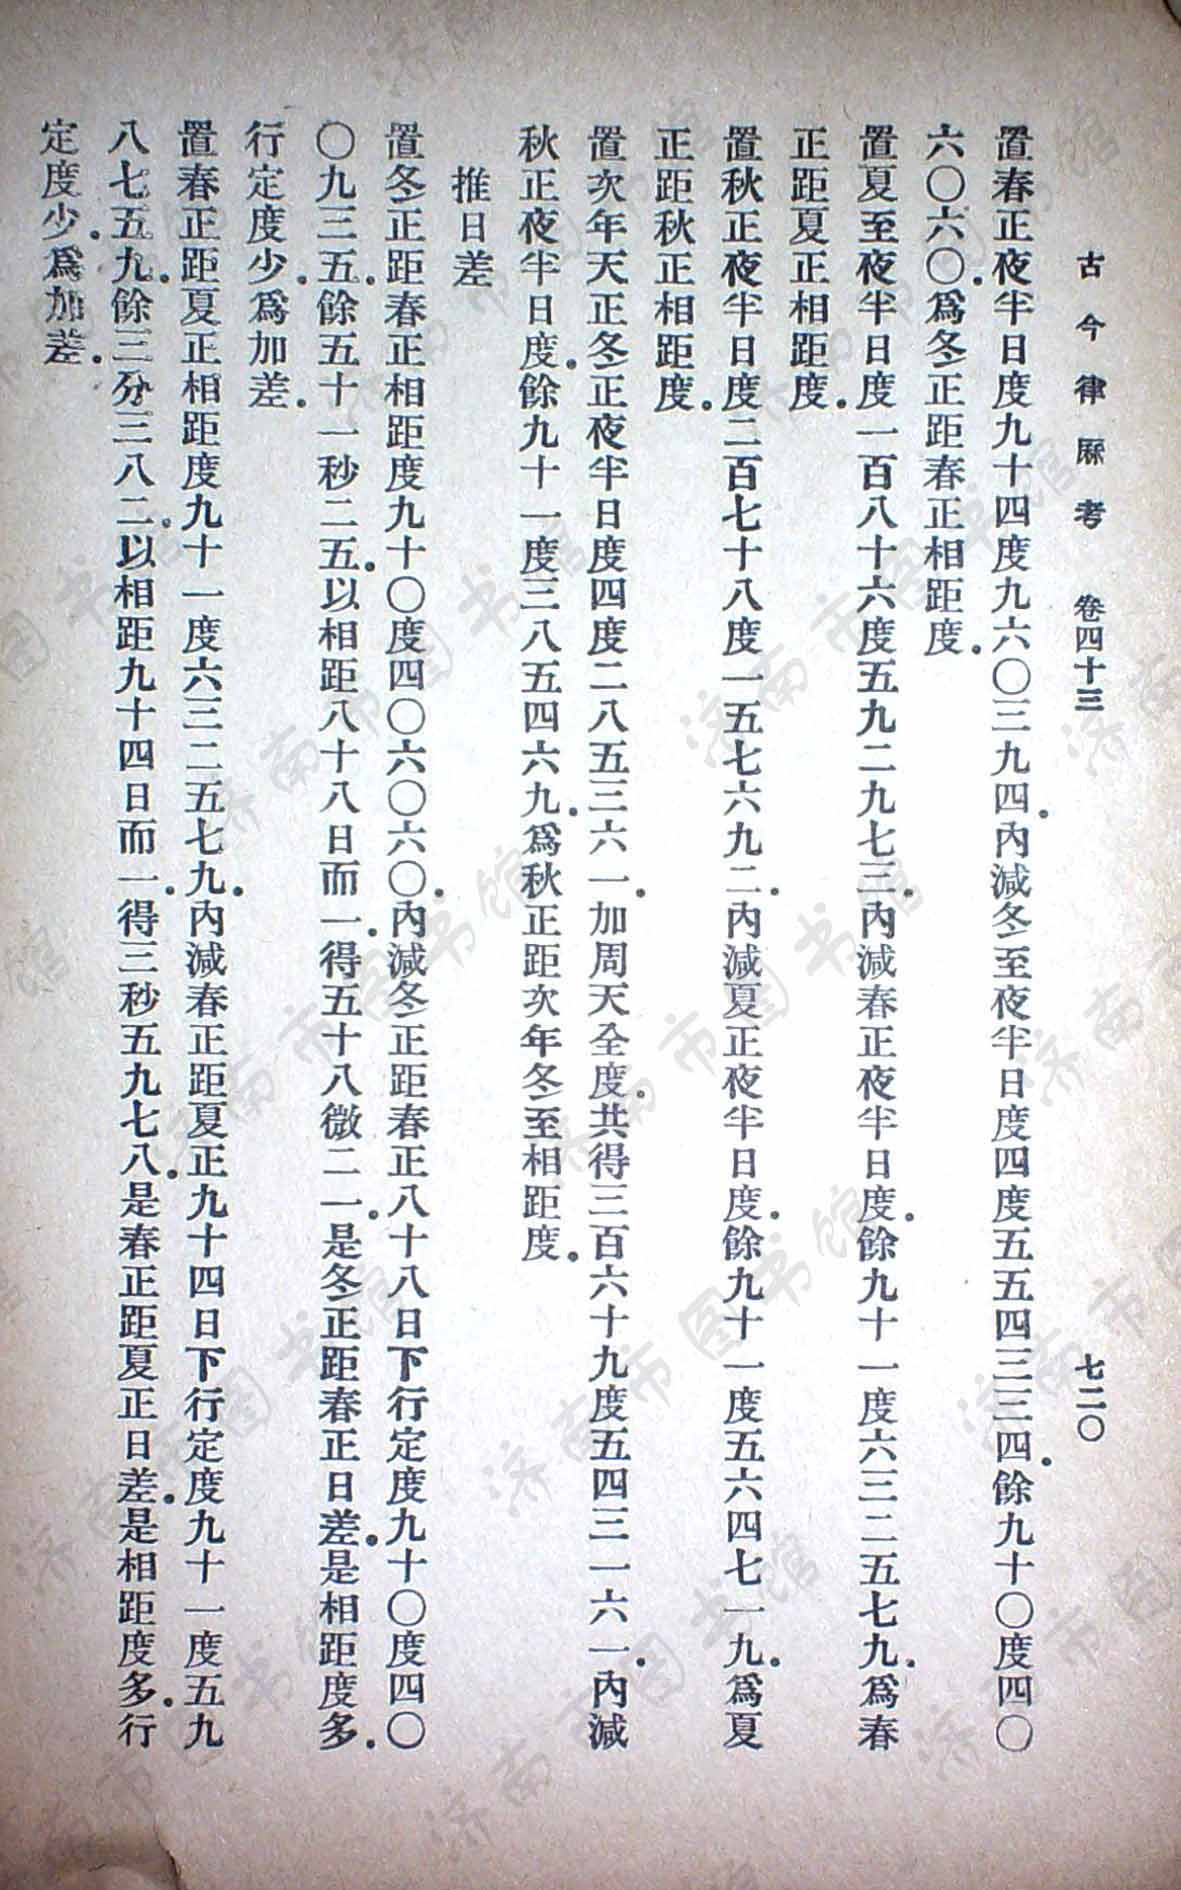 古今律厤考　卷四十三　七二〇
置春正夜半日度九十四度九六〇三九四．內減冬至夜半日度四度五五四三三四．餘九十〇度四〇
六〇六〇．爲冬正距春正相距度．
置夏至夜半日度一百八十六度五九二九七三．內減春正夜半日度．餘九十一度六三二五七九．爲春
正距夏正相距度．
置秋正夜半日度二百七十八度一五七六九二．內減夏正夜半日度．餘九十一度五六四七一九．爲夏
正距秋正相距度．
置次年天正冬正夜半日度四度二八五三六一．加周天全度．共得三百六十九度五四三一六一．內減
秋正夜半日度．餘九十一度三八五四六九．爲秋正距次年冬至相距度．
推日差
置冬正距春正相距度九十〇度四〇六〇六〇．內減冬正距春正八十八日下行定度九十〇度四〇
〇九三五．餘五十一秒二五．以相距八十八日而一．得五十八微二一．是冬正距春正日差．是相距度多．
行定度少．爲加差．
置春正距夏正相距度九十一度六三二五七九．內減春正距夏正九十四日下行定度九十一度五九
八七五九．餘三分三八二．以相距九十四日而一．得三秒五九七八．是春正距夏正日差．是相距度多．行
定度少．爲加差．
济南市图书馆